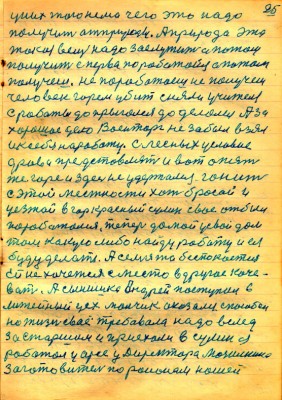 95
у них того нема чего это надо
получит от природы. А природа это
такая вещ надо заслужит а потом
получит сперва поработай а потом
получеш. не поработаеш не получеш
человек горем убит сняли учителя
с работы до прыгался до делался А за
хорошое дело Военторг не забыл взял
к себе на работу. С лесных условие
дрова предстовляют и вот опят
же горе и здес не удержался. гонит
с этой местности хот бросай и
уезжай в г Красный сулин свое отбыл
поработался, тепер домой у свой дом
там какую либо найду работу и ея
буду делат. А семя то беспокоется
Ей не хочется с место в другое коче-
ват. А сынишка Андрей поступил в
литейный цех мальчик оказался способен
но жизн своё требовала надо вслед
за старшим и приехали в сулин я
работал у арсе у Директора
заготовител по районам нашей